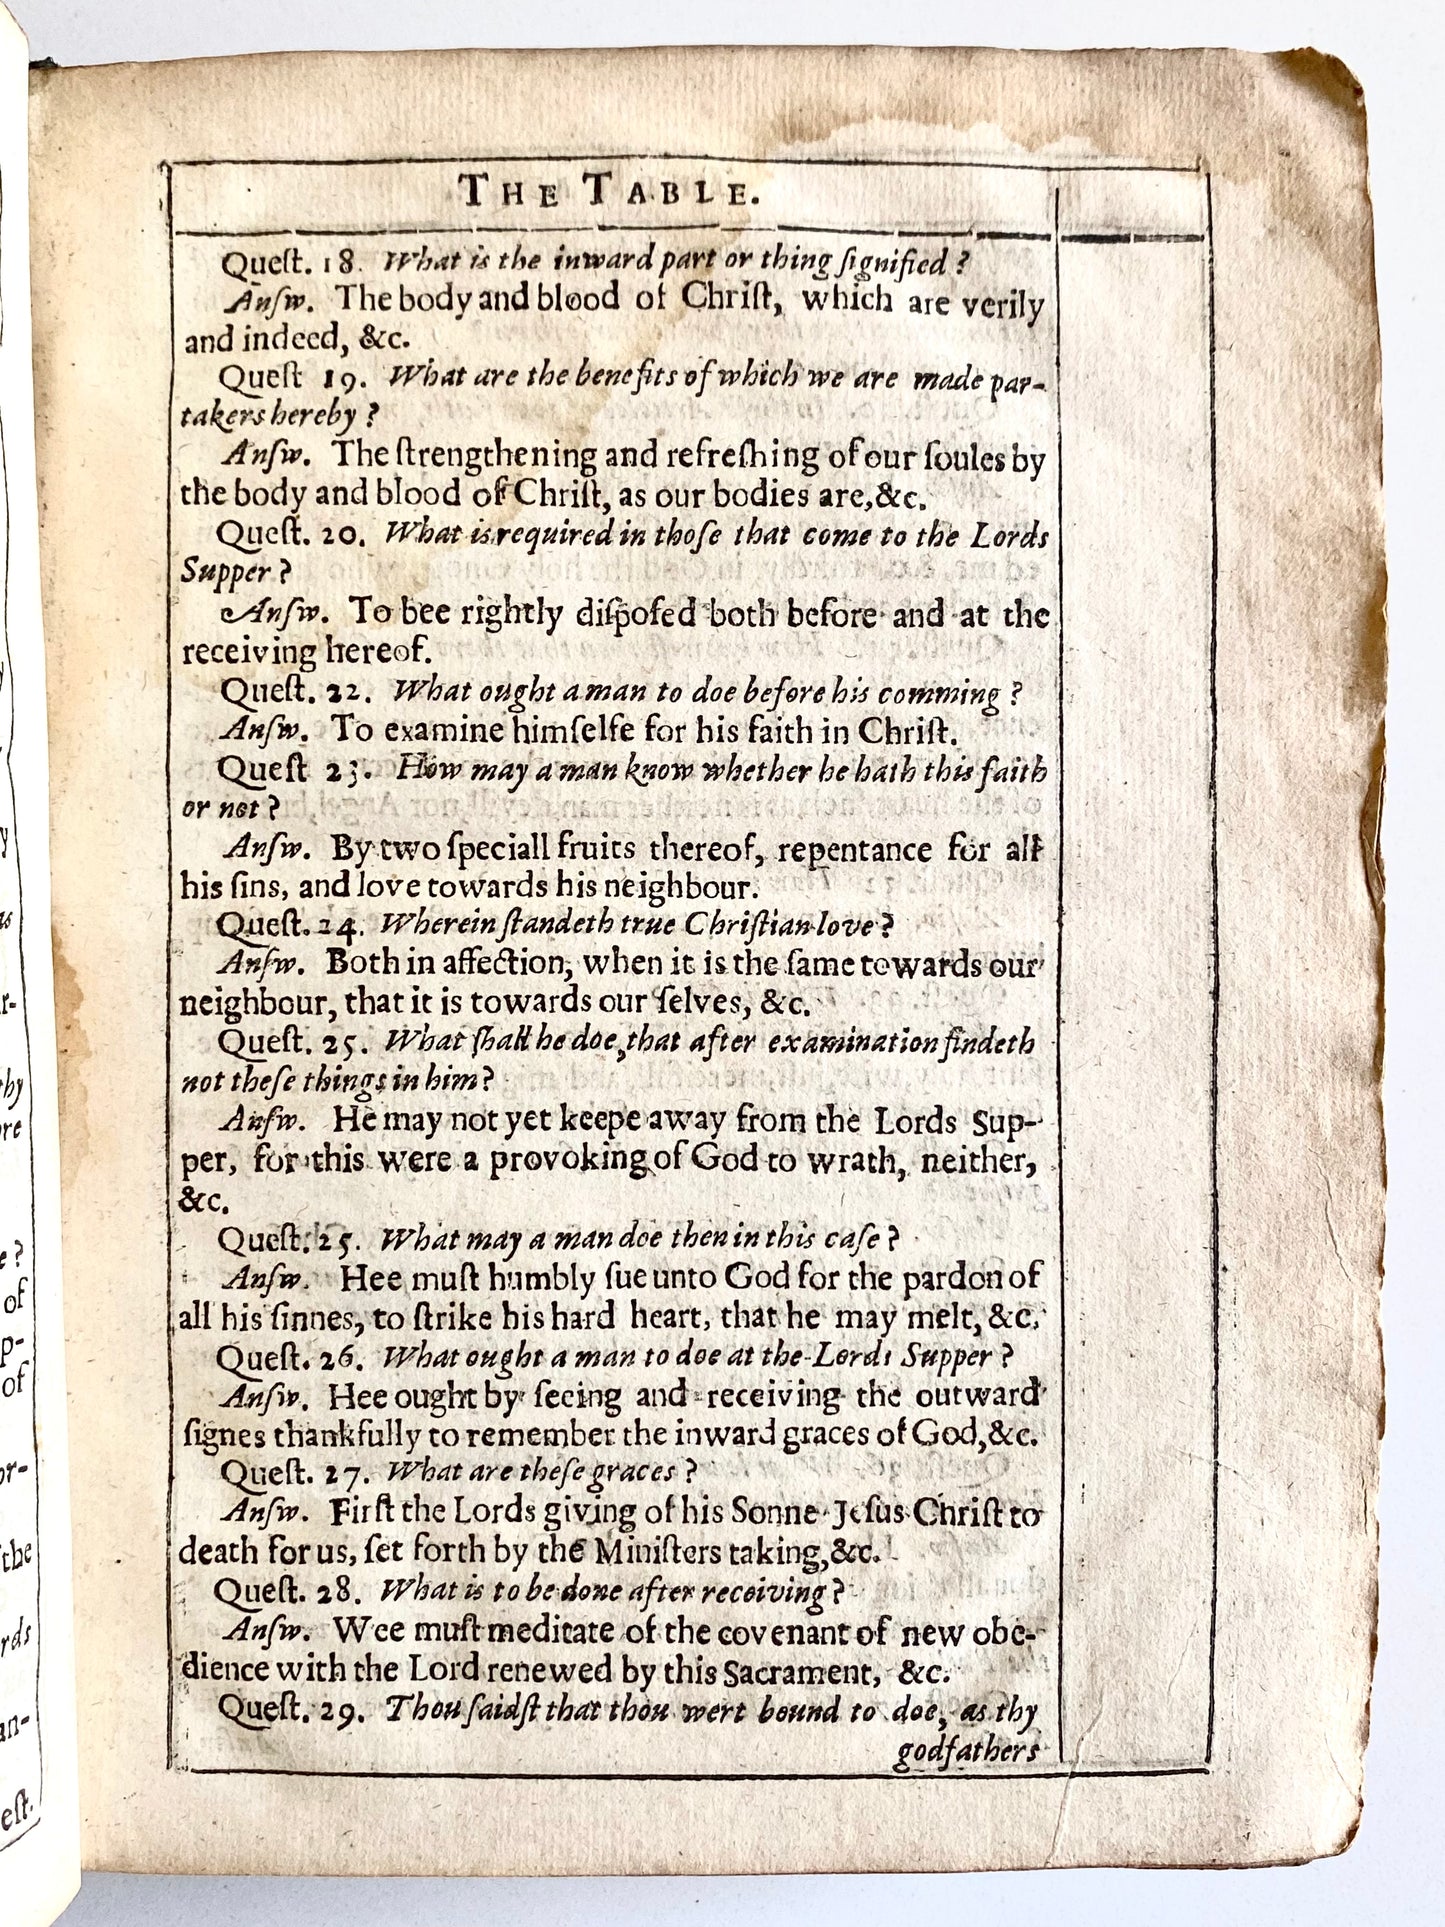 THE TABLE.
Queſt. 18. What is the inward part or thing ſignified ?
Anſw. The body and blood of Chriſt, which are verily
and indeed, &c.
Queſt 19. What are the benefits of which we are made par-
takers hereby ?
Anſw. The ſtrengthening and refreſhing of our ſoules by
the body and blood of Chriſt, as our bodies are,&c.
Queſt. 20. What is required in thoſe that come to the Lords
Supper ?
Anſw. To bee rightly diſpoſed both before and at the
receiving hereof.
Queſt. 22. What ought a man to doe before his comming ?
Anſw. To examine himſelfe for his faith in Chriſt.
Queſt 23. How may a man know whether he hath this faith
or not ?
Anſw. By two ſpeciall fruits thereof, repentance for all
his ſins, and love towards his neighbour.
Queſt. 24. Wherein ſtandeth true Chriſtian love ?
Anſw. Both in affection, when it is the ſame towards our
neighbour, that it is towards our ſelves, &c.
Queſt. 25. What ſhall he doe, that after examination findeth
not theſe things in him ?
Anſw. He may not yet keepe away from the Lords Sup-
per, for this were a provoking of God to wrath, neither,
&c.
Queſt. 25. What may a man doe then in this caſe ?
Anſw. Hee muſt humbly ſue unto God for the pardon of
all his ſinnes, to ſtrike his hard heart, that he may melt, &c.
Queſt. 26. What ought a man to doe at the Lords Supper ?
Anſw. Hee ought by ſeeing and receiving the outward
ſignes thankfully to remember the inward graces of God,&c.
Queſt. 27. What are theſe graces ?
Anſw. Firſt the Lords giving of his Sonne Jeſus Chriſt to
death for us, ſet forth by the Miniſters taking,&c.
Queſt. 28. What is to be done after receiving ?
Anſw. Wee muſt meditate of the covenant of new obe-
dience with the Lord renewed by this Sacrament, &c.
Queſt. 29. Thou ſaidſt that thou wert bound to doe, as thy
godfathers